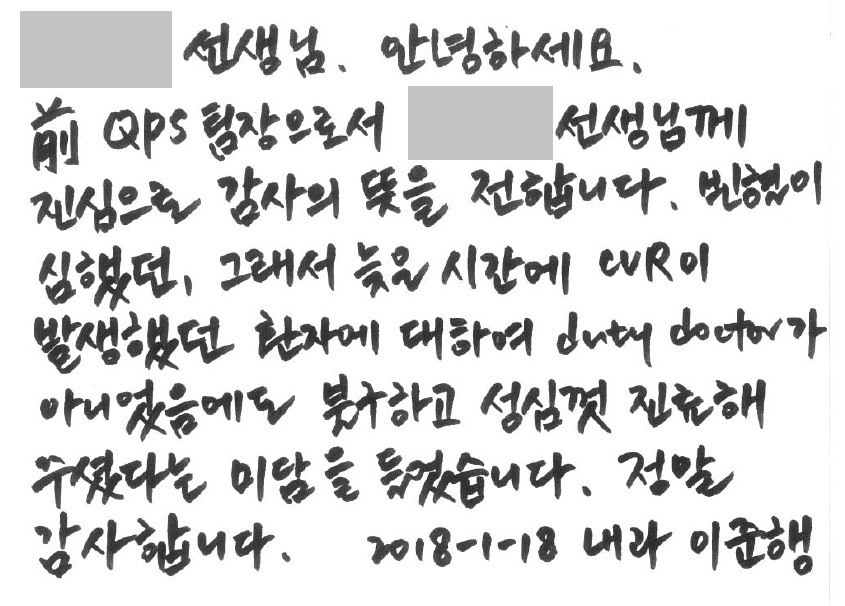 선생님. 안녕하세요.
前 QPS 팀장으로서 선생님께
진심으로 감사의 뜻을 전합니다. 빈혈이
심했던, 그래서 늦은 시간에 CVR이
발생했던 환자에 대하여 duty doctor가
아니었음에도 붓구하고 성심껏 진료해
주셨다는 미담을 들었습니다. 정말
감사합니다. 2018-1-18 내과 이준행